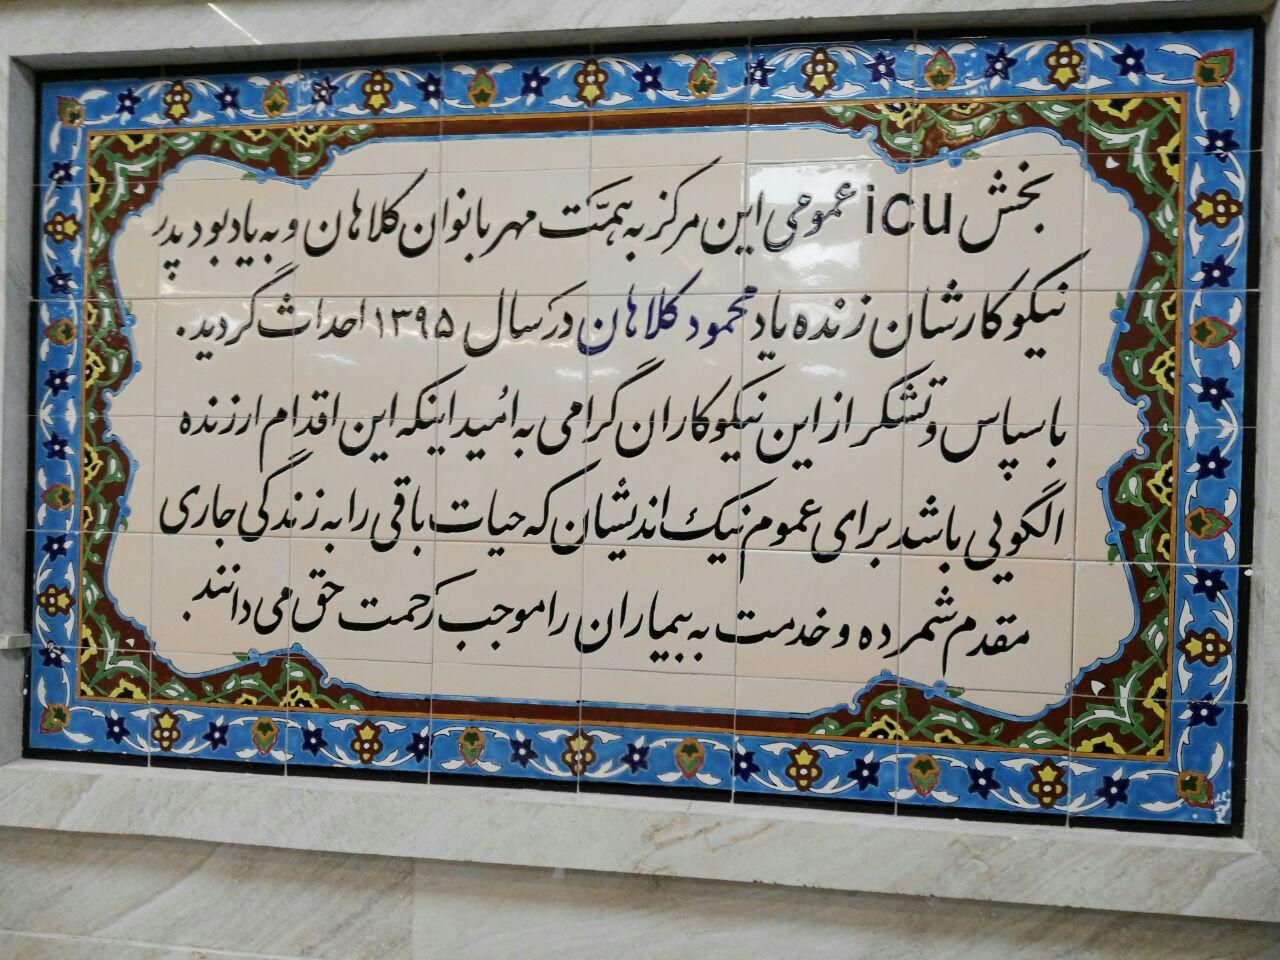 بخش icu عمومی این مرکز به همّت مهربانوان کلاهان و به یادبود پدر
نیکوکارشان زنده یاد محمود کلاهان در سال ۱۳۹۵ احداث گردید.
با سپاس و تشکر از این نیکوکاران گرامی به امُید اینکه این اقدام ارزنده
الگویی باشد برای عموم نیک اندیشان که حیات باقی را به زندگی جاری
مقدم شمرده و خدمت به بیماران را موجب رَحمت حق می دانند.